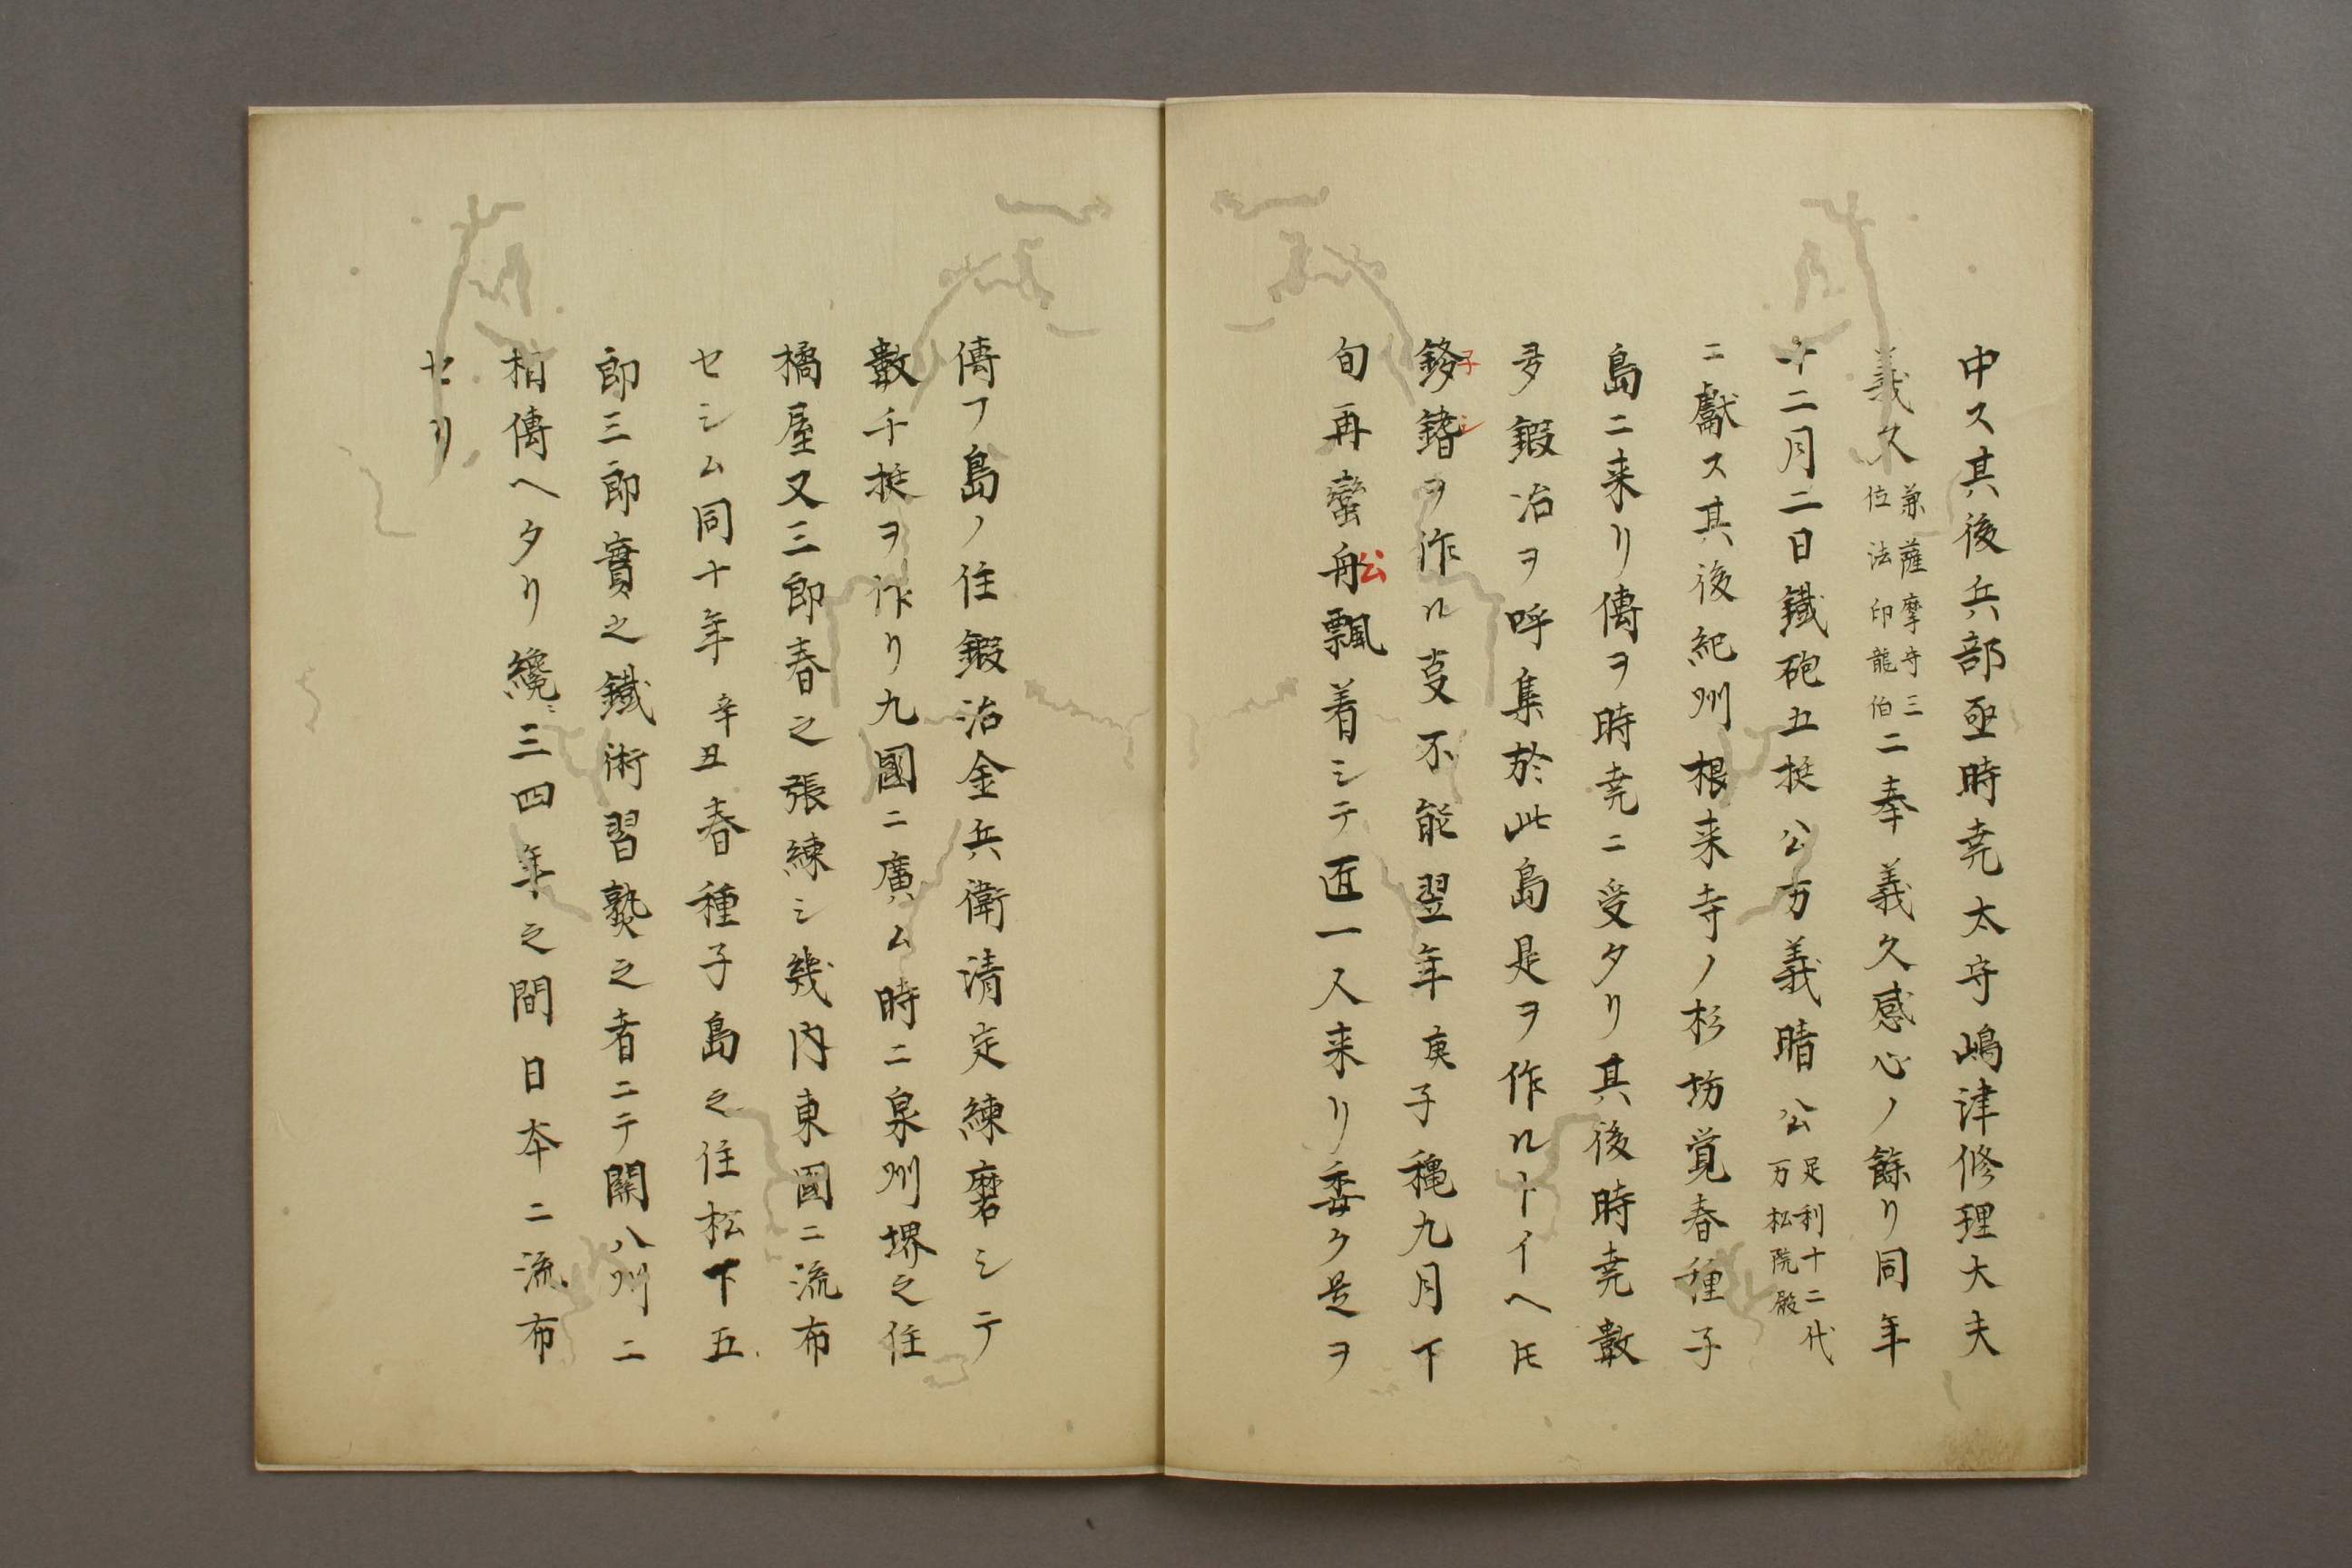 中ス其後兵部亟時堯太守嶋津修理大夫
義久兼薩摩守三位法印龍伯ニ奉義久感心ノ餘リ同年
十二月二日鐵砲五挺公方義晴公足利十二代万松院殿
ニ獻ス其後紀州根来寺ノ杉坊覚春種子
島ニ来リ傳ヲ時堯ニ受タリ其後時堯數
多鍜冶ヲ呼集於此島是ヲ作ルトイヘ𪜈
子シ
鉹鐕ヲ作ル叓不能翌年庚子穐九月下
公
旬再蠻舟飄着シテ匠一人来リ委ク是ヲ
傳フ島ノ住鍜冶金兵衛清定練磨シテ
數千挺ヲ作リ九國ニ廣ム時ニ泉州堺之住
橘屋又三郎春之張練シ幾内東國ニ流布
セシム同十年辛丑春種子島之住松下五
郎三郎實之鐵術習熟之者ニテ關八州ニ
相傳ヘタリ纔ニ三四年之間日本ニ流布
セリ